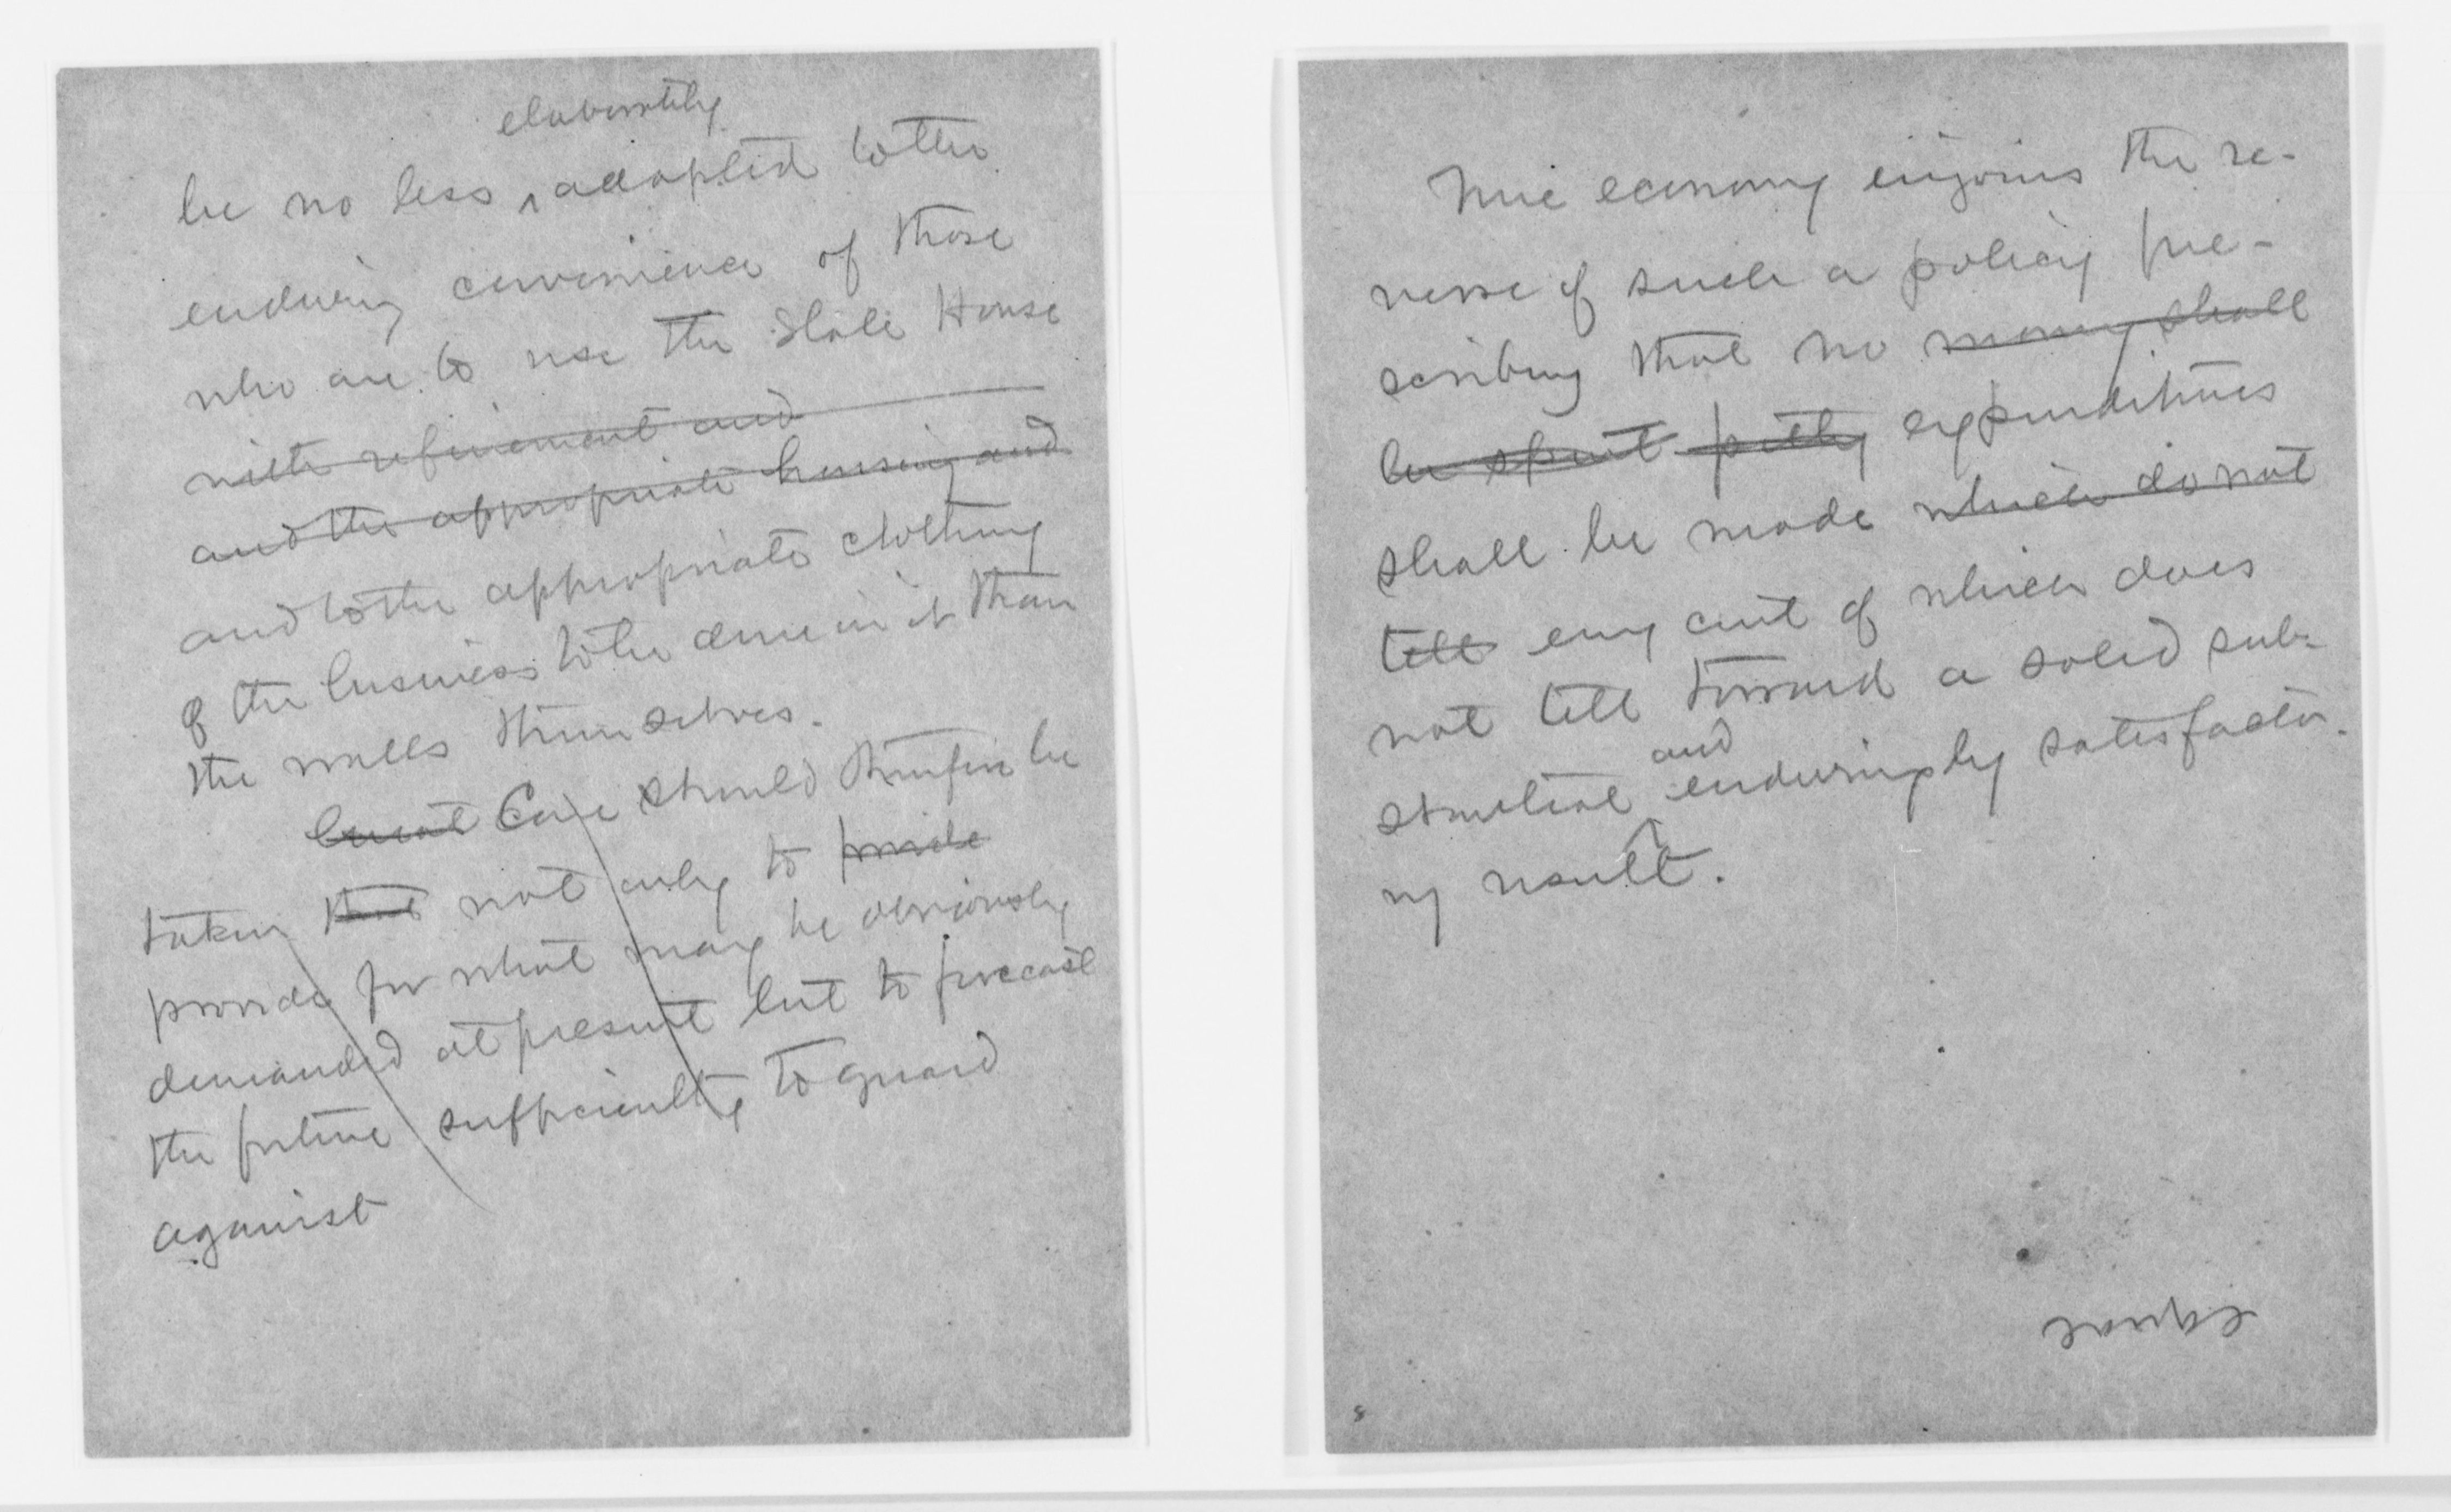 elaborately
be no less adapted to the
enduring convenience of those
who are to use the State House
with refinement and
and the appropriate housing and
and to the appropriate clothing
of the business to be done in it than
the walls themselves.
Great Care should therefore be
taken that not only to
provide for what may be obviously
demanded at present but to forecast
the future sufficiently to guard
against
True economy enjoins the re-
verse of such a policy pre-
scribing that no money shall
be spent petty expenditures
shall be made which do not
tell any cent of which does
not tell toward a solid sub-
and
stantial enduringly satisfacto-
ry result.